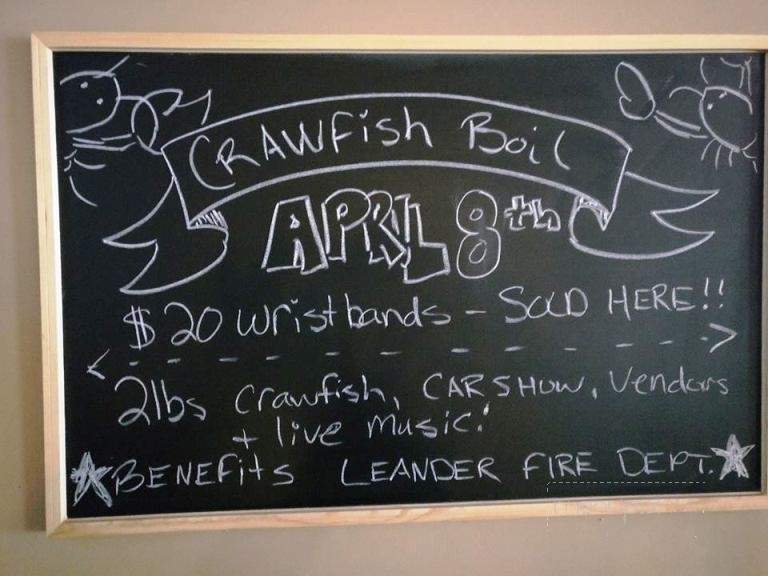 CRAWFish Boil
APRIL 8th
$20 wristbands - SOLD HERE!!
2lbs crawfish, CARSHOW, Vendors
+ live music!
BENEFitS LEANDER FIRE DEPT.